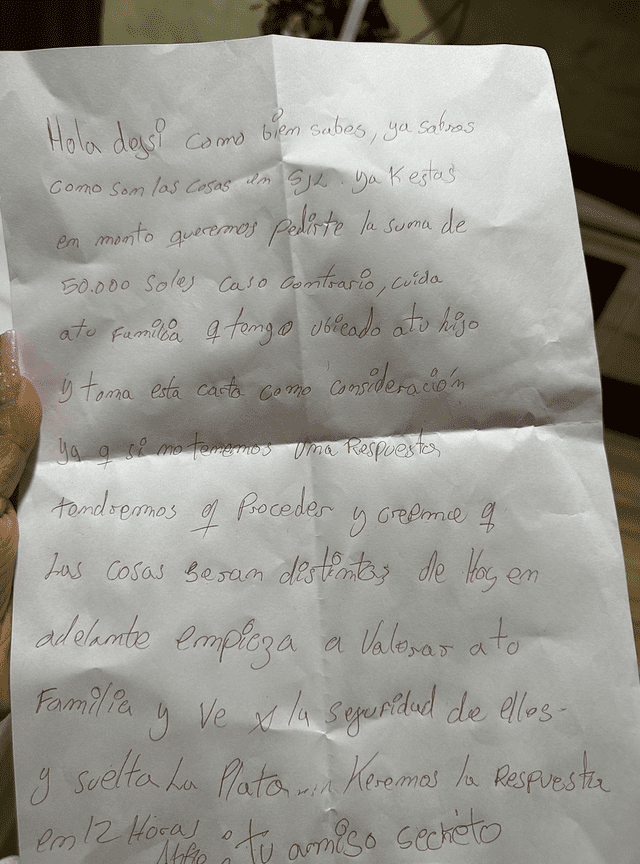 Hola deysi como bien sabes, ya sabras
como son las cosas en SJL. ya k estas
en monto queremos pedirte la suma de
50.000 soles caso contrario, cuida
a tu Familia q tengo ubicado a tu hijo
y toma esta carta como consideración
ya q si no tenemos una Respuesta
tendremos q Proceder y creeme q
Las cosas seran distintas de Hoy en
adelante empieza a Valorar a tu
Familia y Ve x la seguridad de ellos-
y suelta La Plata Keremos la Respuesta
en 12 Horas
Atte. tu amigo secreto